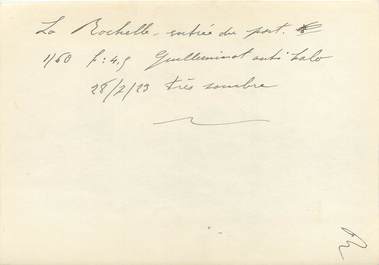 La Rochelle - entrée du port.
1/60 f: 4.5 Guilleminot anti halo
28/2/23 très sombre